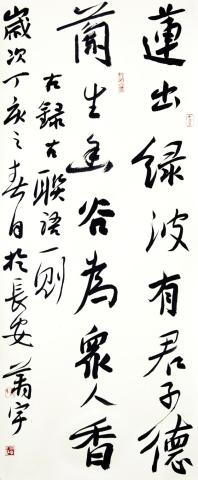 蓮出緑波有君子德
蘭生幽谷為衆人香
右録古聯語一則
歲次丁亥之春日於長安 萧宇